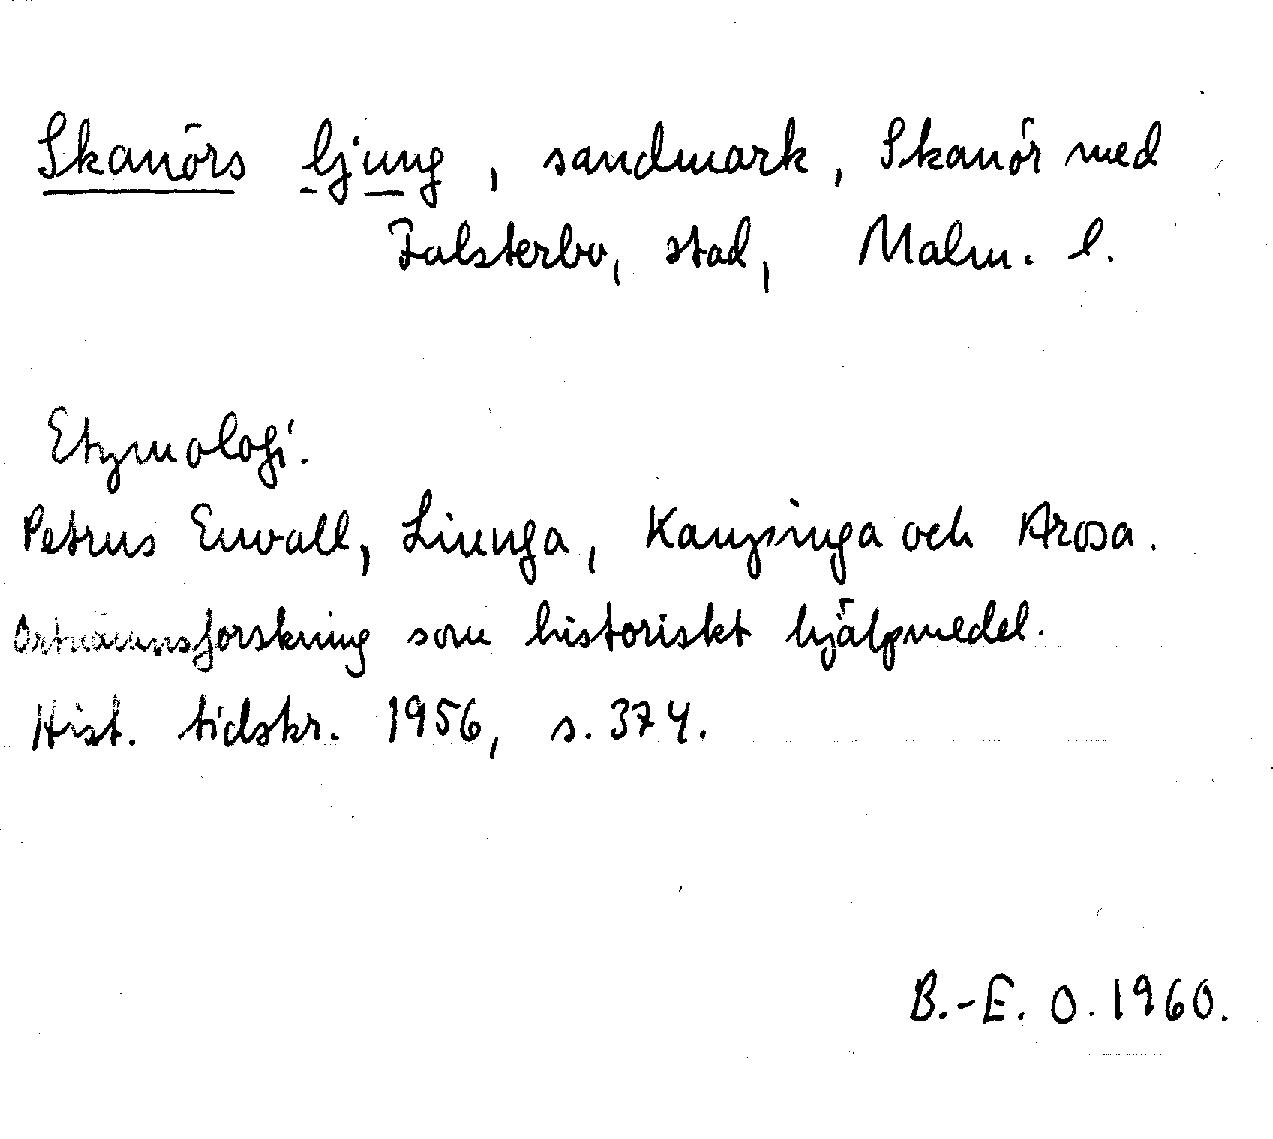 Skanörs ljung, sandmark, Skanör med
Falsterbo, stad, Malm. l.
Etymologi.
Petrus Envall, Liunga, Kaupinga och Arosa.
Ortnamnsforskning som historiskt hjälpmedel.
Hist. tidskr. 1956, s. 374.
B.-E. O. 1960.